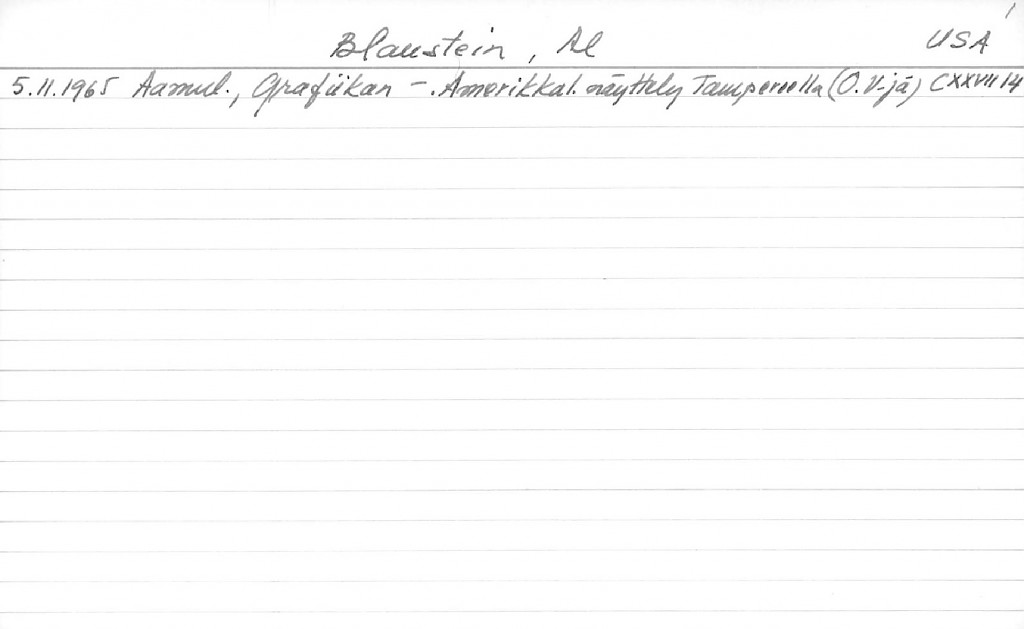 1
Blaustein, Al USA
5.11.1965 Aamul., Grafiikan –. Amerikkal. näyttely Tampereella (O.V-jä) CXXVII 14